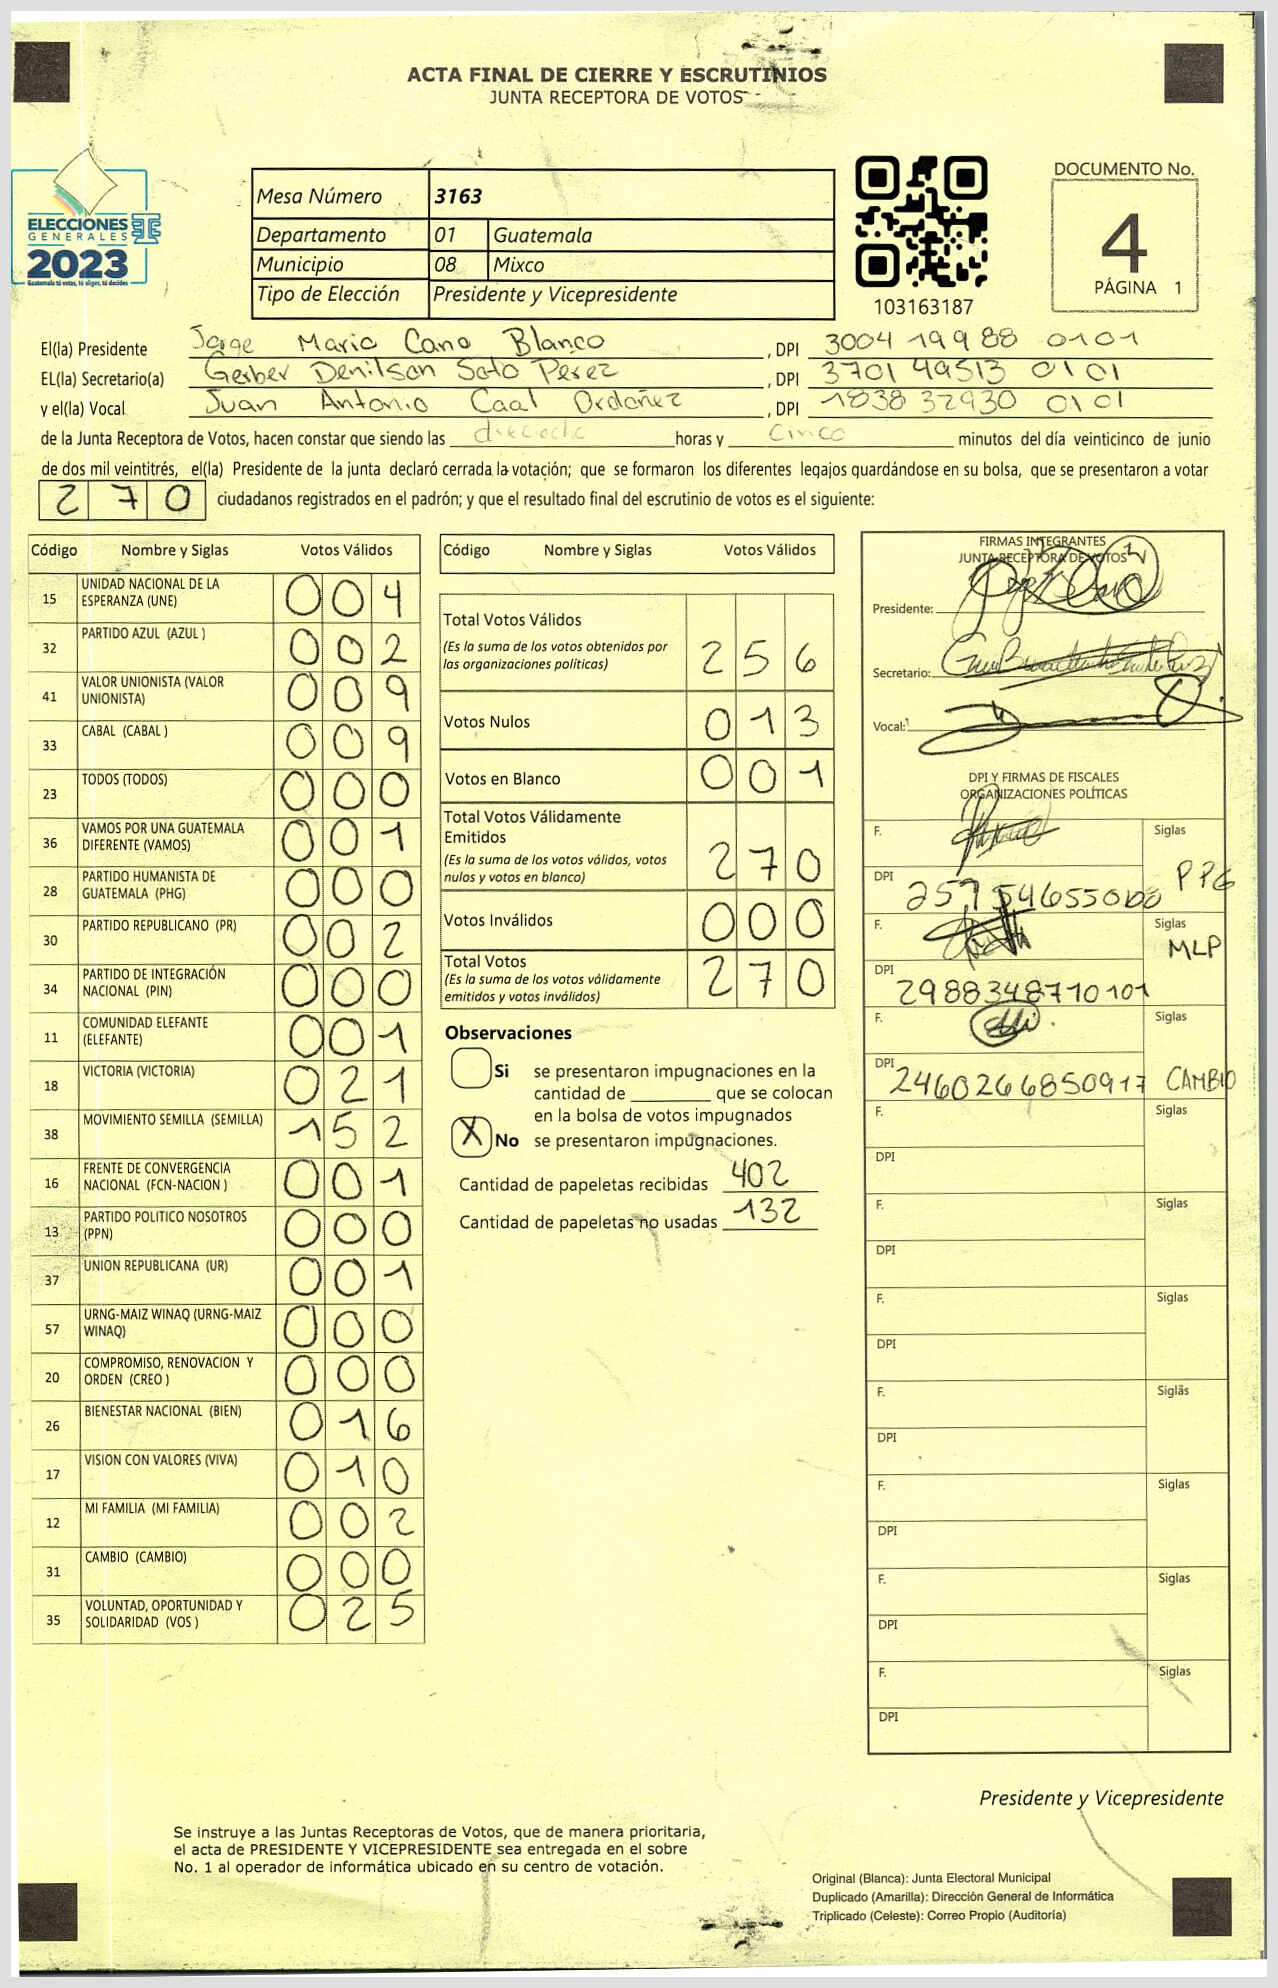 ACTA FINAL DE CIERRE Y ESCRUTINIOS
JUNTA RECEPTORA DE VOTOS
ELECCIONES
GENERALES
2023
Guatemala tú votas, tú eliges, tú decides
Mesa Número 3163
Departamento 01 Guatemala
Municipio 08 Mixco
Tipo de Elección Presidente y Vicepresidente
103163187
DOCUMENTO No.
4
PÁGINA 1
El(la) Presidente Jorge Mario Cano Blanco, DPI 3004 19988 0101
EL(la) Secretario(a) Gerber Denilson Soto Perez, DPI 3701 49513 0101
y el(la) Vocal Juan Antonio Caal Ordoñez, DPI 1838 32930 0101
de la Junta Receptora de Votos, hacen constar que siendo las dieciocho horas y cinco minutos del día veinticinco de junio
de dos mil veintitrés, el(la) Presidente de la junta declaró cerrada la votación; que se formaron los diferentes legajos quardándose en su bolsa, que se presentaron a votar
270 ciudadanos registrados en el padrón; y que el resultado final del escrutinio de votos es el siguiente:
Código Nombre y Siglas Votos Válidos
15 UNIDAD NACIONAL DE LA ESPERANZA (UNE) 004
32 PARTIDO AZUL (AZUL ) 002
41 VALOR UNIONISTA (VALOR UNIONISTA) 009
33 CABAL (CABAL ) 009
23 TODOS (TODOS) 000
36 VAMOS POR UNA GUATEMALA DIFERENTE (VAMOS) 001
28 PARTIDO HUMANISTA DE GUATEMALA (PHG) 000
30 PARTIDO REPUBLICANO (PR) 002
34 PARTIDO DE INTEGRACIÓN NACIONAL (PIN) 000
11 COMUNIDAD ELEFANTE (ELEFANTE) 001
18 VICTORIA (VICTORIA) 021
38 MOVIMIENTO SEMILLA (SEMILLA) 152
16 FRENTE DE CONVERGENCIA NACIONAL (FCN-NACION ) 001
13 PARTIDO POLITICO NOSOTROS (PPN) 000
37 UNION REPUBLICANA (UR) 001
57 URNG-MAIZ WINAQ (URNG-MAIZ WINAQ) 000
20 COMPROMISO, RENOVACION Y ORDEN (CREO ) 000
26 BIENESTAR NACIONAL (BIEN) 016
17 VISION CON VALORES (VIVA) 010
12 MI FAMILIA (MI FAMILIA) 002
31 CAMBIO (CAMBIO) 000
35 VOLUNTAD, OPORTUNIDAD Y SOLIDARIDAD (VOS ) 025
Código Nombre y Siglas Votos Válidos
Total Votos Válidos
(Es la suma de los votos obtenidos por las organizaciones políticas) 256
Votos Nulos 013
Votos en Blanco 001
Total Votos Válidamente Emitidos
(Es la suma de los votos válidos, votos nulos y votos en blanco) 270
Votos Inválidos 000
Total Votos
(Es la suma de los votos válidamente emitidos y votos inválidos) 270
Observaciones
Si se presentaron impugnaciones en la
cantidad de ________ que se colocan
en la bolsa de votos impugnados
X No se presentaron impugnaciones.
Cantidad de papeletas recibidas 402
Cantidad de papeletas no usadas 132
FIRMAS INTEGRANTES
JUNTA RECEPTORA DE VOTOS
Presidente:
Secretario:
Vocal:
DPI Y FIRMAS DE FISCALES
ORGANIZACIONES POLÍTICAS
F. Siglas
DPI
F. Siglas MLP
DPI 2988348710101
F. Siglas
DPI 2460266850917 CAMBIO
F. Siglas
DPI
F. Siglas
DPI
F. Siglas
DPI
F. Siglas
DPI
F. Siglas
DPI
F. Siglas
DPI
F. Siglas
DPI
Presidente y Vicepresidente
Se instruye a las Juntas Receptoras de Votos, que de manera prioritaria,
el acta de PRESIDENTE Y VICEPRESIDENTE sea entregada en el sobre
No. 1 al operador de informática ubicado en su centro de votación.
Original (Blanca): Junta Electoral Municipal
Duplicado (Amarilla): Dirección General de Informática
Triplicado (Celeste): Correo Propio (Auditoría)